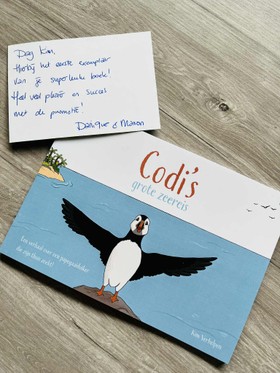 Dag Kim,
Hierbij het eerste exemplaar
van je superleuke boek!
Heel veel plezier en succes
met de promotie!
Danique & Manon
Codi's
grote zeereis
Een verhaal over een papegaaiduiker
die zijn thuis zoekt!
Kim Verhelpen